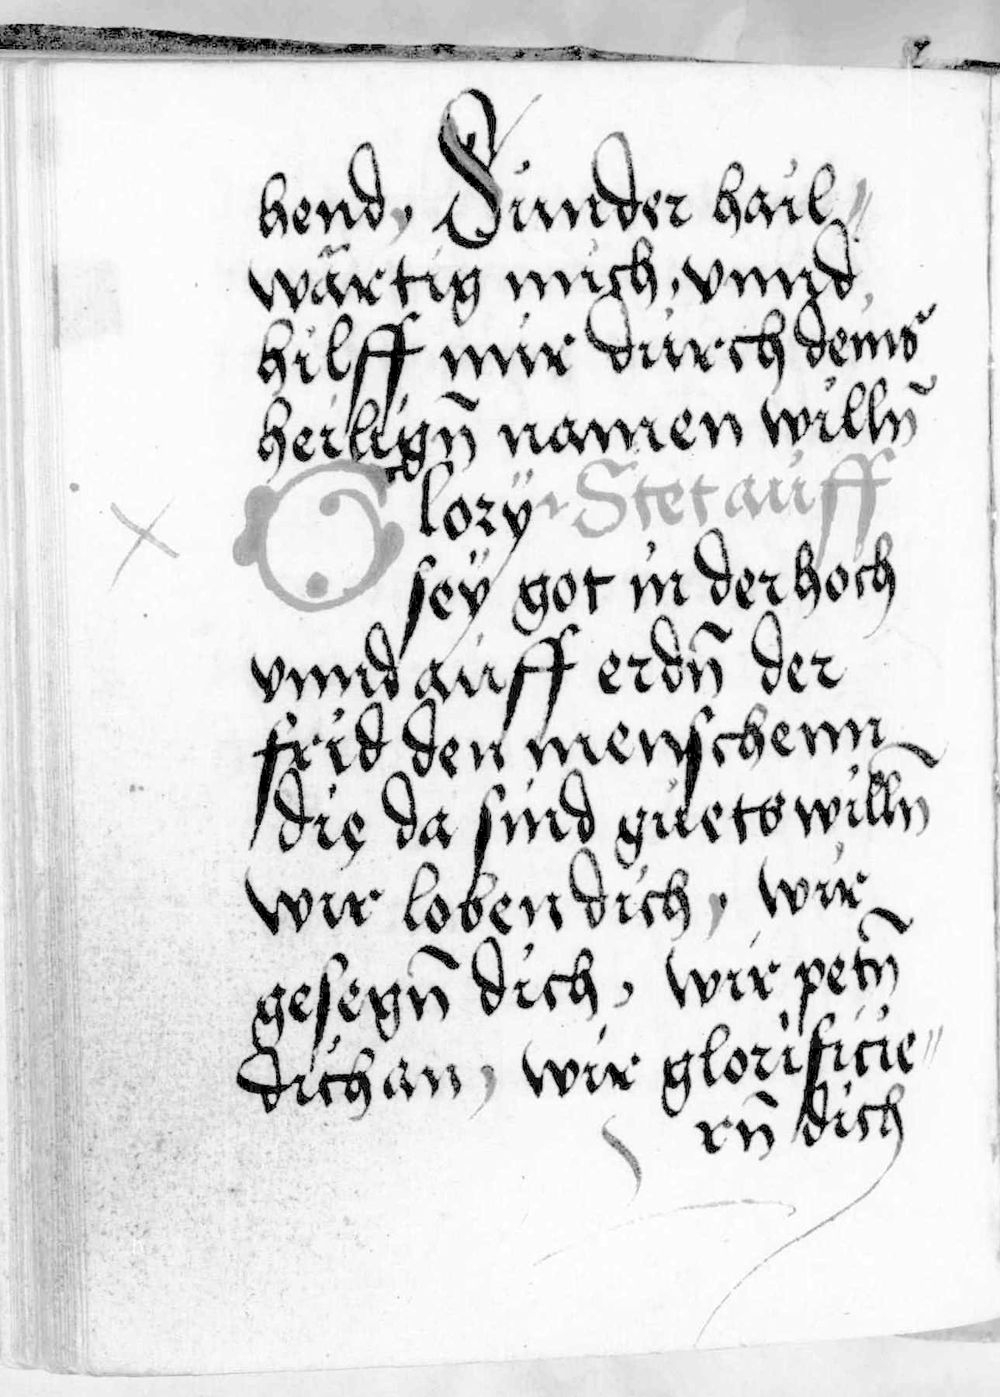 hend, Sunder hail„
wärtig mich, vnnd
hilff mir durch deins
heilign̄ namen willn̄
Glory Stet auff
seÿ got in der hoch
vnnd auff erdn̄ der
frid den menschenn
die da sind guets willn̄
wir loben dich, wir
gesegn̄ dich, wir petn̄
dich an, wir glorificie„
rn̄ dich